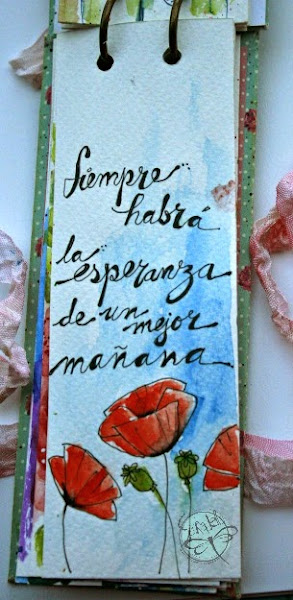 Siempre
habrá
la esperanza
de un mejor
mañana